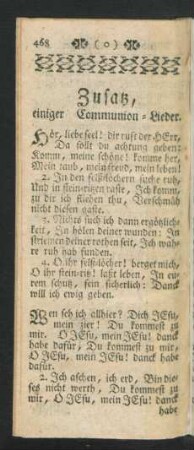 468 ( o )
Zusatz,
einiger Communion-Lieder.
Hör, liebe seel! dir ruft der HErr,
Da sollt du achtung geben:
Komm, meine schöne! komme her,
Mein taub, mein freud, mein leben!
2. In den felslöchern suche ruh,
Und in steinritzen raste, Ich komm,
zu dir ich fliehen thu, Verschmäh
nicht diesen gaste.
3. Nichts such ich dann ergötzlich-
keit, In hölen deiner wunden: In
striemen deiner rothen seit, Ich wah-
re ruh hab funden.
4. O ihr felslöcher! berget mich,
O ihr steinritz! laßt leben, In eu-
rem schutz, sein sicherlich: Danck
will ich ewig geben.
Wen seh ich allhier? Dich JEsu,
mein zier! Du kommest zu
mir, O JEsu, mein JEsu! danck
habe dafür, Du kommest zu mir,
O JEsu, mein JEsu! danck habe
dafür.
2. Ich aschen, ich erd, Bin die-
ses nicht werth, Du kommest zu
mir, O JEsu, mein JEsu! danck
habe